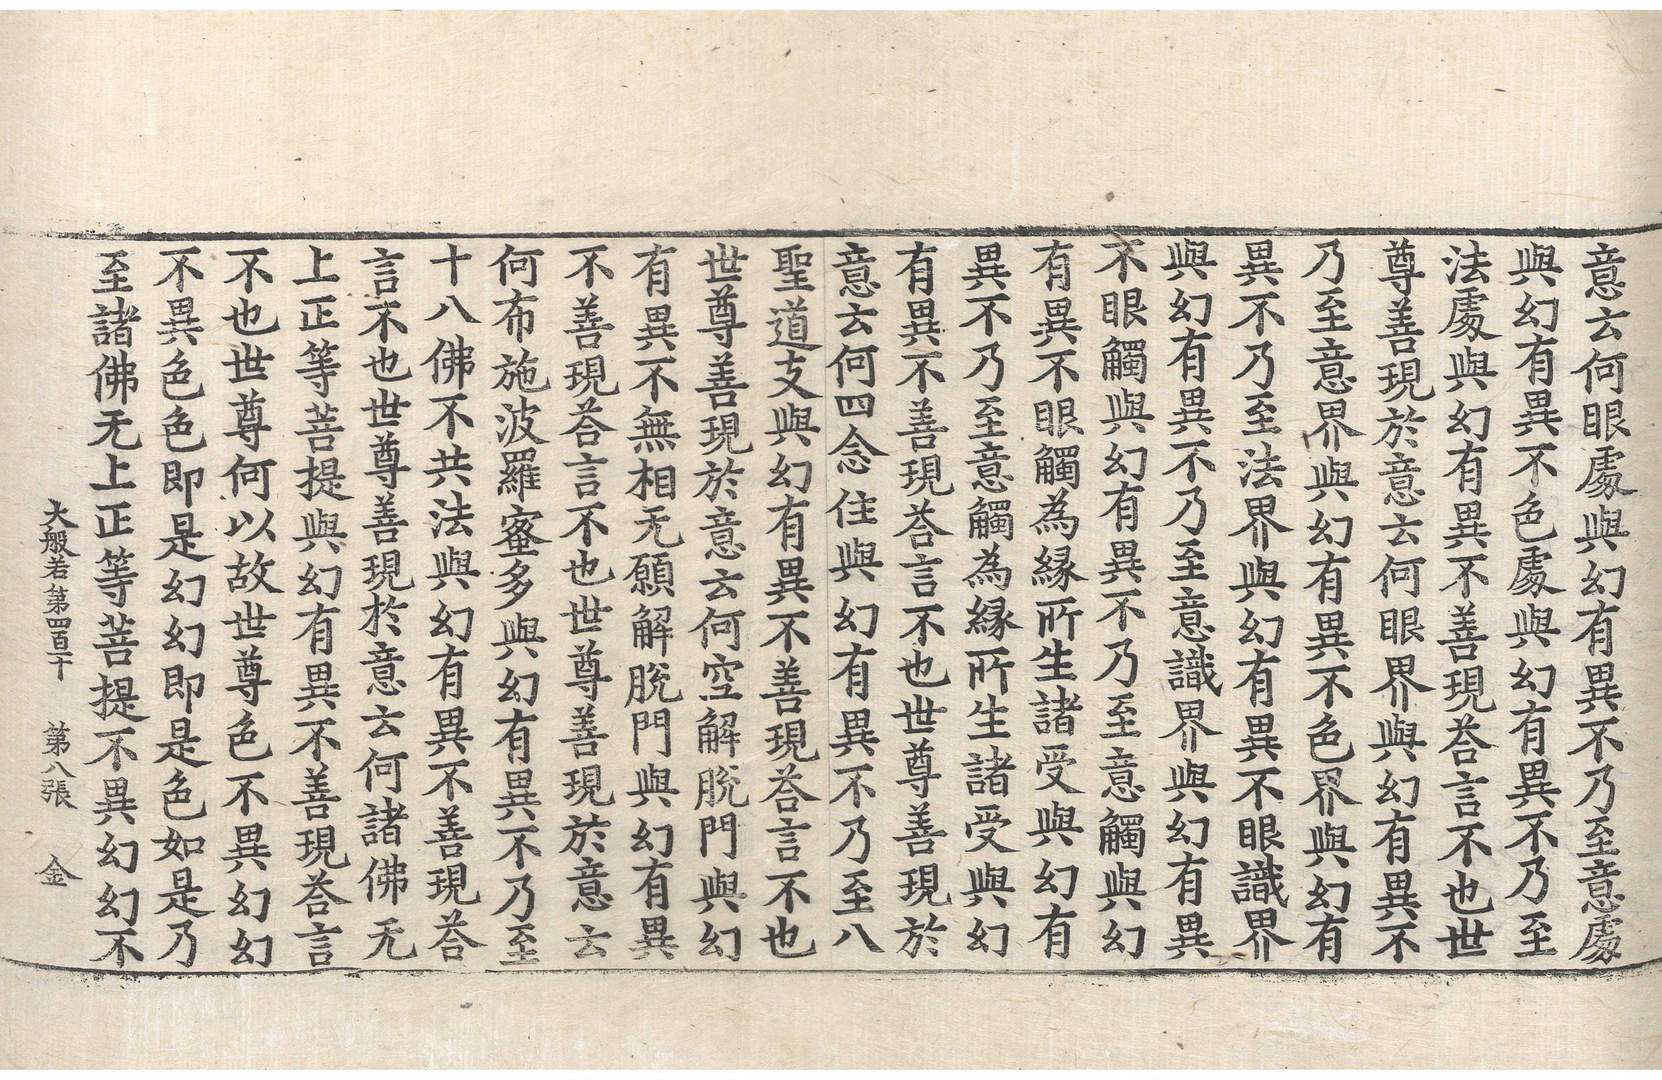 意云何眼處與幻有異不乃至意處
與幻有異不色處與幻有異不乃至
法處與幻有異不善現荅言不也世
尊善現於意云何眼界與幻有異不
乃至意界與幻有異不色界與幻有
異不乃至法界與幻有異不眼識界
與幻有異不乃至意識界與幻有異
不眼觸與幻有異不乃至意觸與幻
有異不眼觸為緣所生諸受與幻有
異不乃至意觸為緣所生諸受與幻
有異不善現荅言不也世尊善現於
意云何四念住與幻有異不乃至八
聖道支與幻有異不善現荅言不也
世尊善現於意云何空解脫門與幻
有異不無相无願解脫門與幻有異
不善現荅言不也世尊善現於意云
何布施波羅蜜多與幻有異不乃至
十八佛不共法與幻有異不善現荅
言不也世尊善現於意云何諸佛无
上正等菩提與幻有異不善現荅言
不也世尊何以故世尊色不異幻幻
不異色色即是幻幻即是色如是乃
至諸佛无上正等菩提不異幻幻不
大般若第四百十 第八張 金